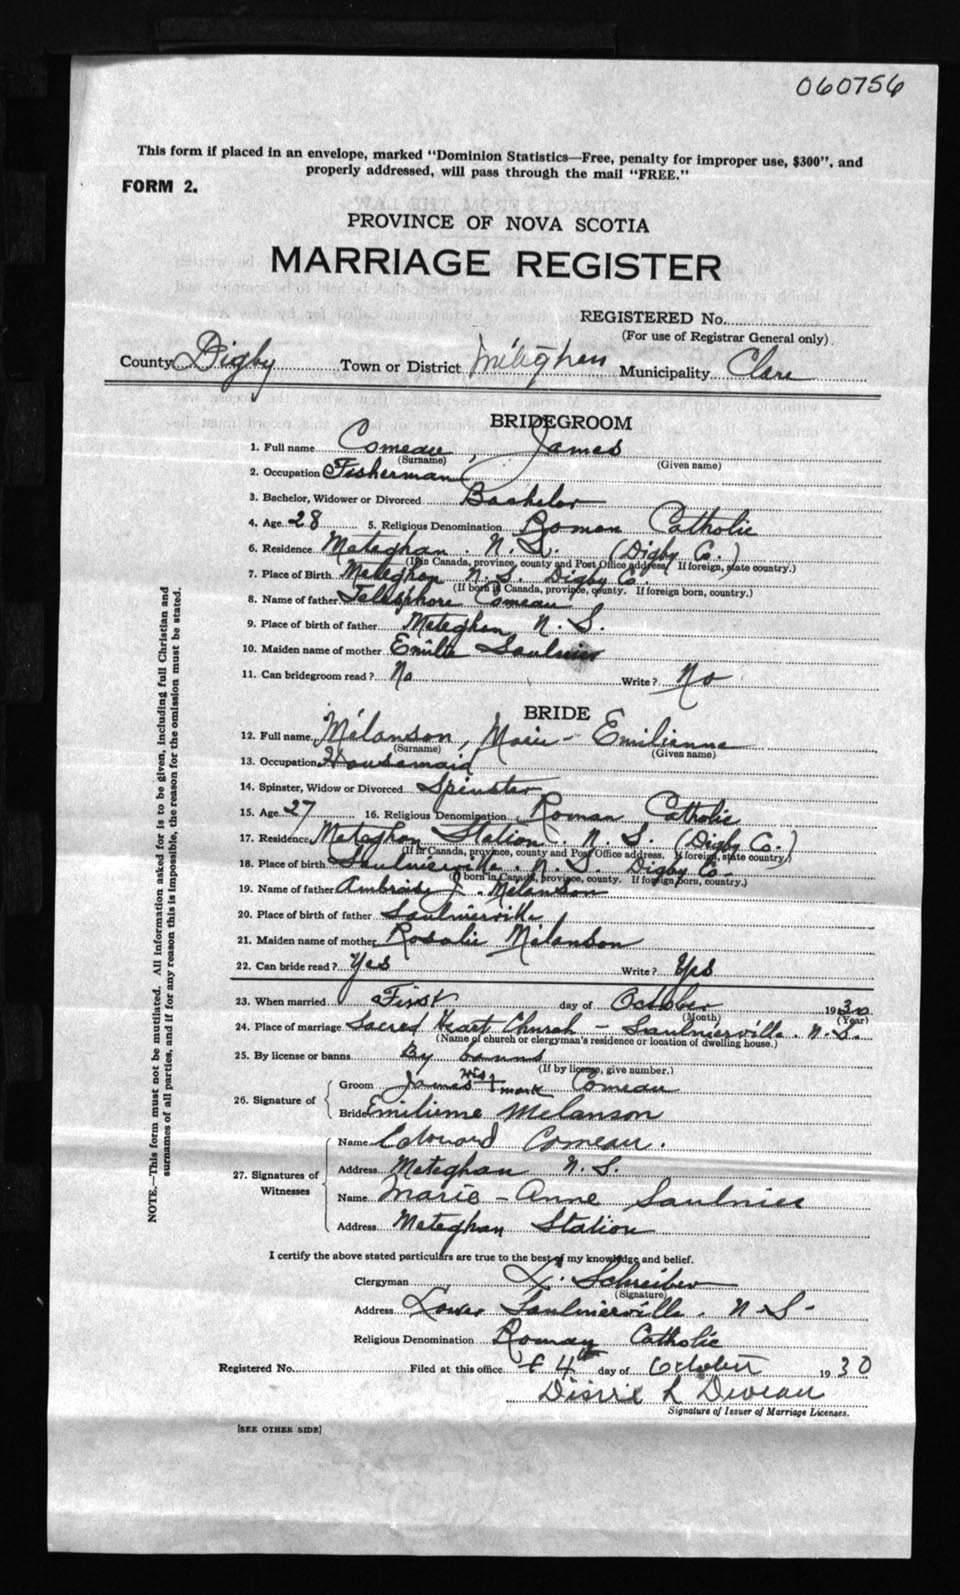 060756
This form if placed in an envelope, marked "Dominion Statistics—Free, penalty for improper use, $300", and
properly addressed, will pass through the mail "FREE."
FORM 2.
PROVINCE OF NOVA SCOTIA
MARRIAGE REGISTER
REGISTERED No.
(For use of Registrar General only)
County Digby Town or District Meteghan Municipality Clare
BRIDEGROOM
1. Full name Comeau, James
(Surname) (Given name)
2. Occupation Fisherman
3. Bachelor, Widower or Divorced Bachelor
4. Age 28 5. Religious Denomination Roman Catholic
6. Residence Meteghan. N. S. (Digby Co.)
(If in Canada, province, county and Post Office address. If foreign, state country.)
7. Place of Birth Meteghan N. S. Digby Co.
(If born in Canada, province, county. If foreign born, country.)
8. Name of father Telesphore Comeau
9. Place of birth of father Meteghan N. S.
10. Maiden name of mother Emilie Saulnier
11. Can bridegroom read? No Write? No
BRIDE
12. Full name Mélanson, Marie-Emilienne
(Surname) (Given name)
13. Occupation Housemaid
14. Spinster, Widow or Divorced Spinster
15. Age 27 16. Religious Denomination Roman Catholic
17. Residence Meteghan Station. N. S. (Digby Co.)
(If in Canada, province, county and Post Office address. If foreign, state country)
18. Place of birth Saulnierville. N. S. Digby Co.
(If born in Canada, province, county. If foreign born, country.)
19. Name of father Ambroise J. Mélanson
20. Place of birth of father Saulnierville
21. Maiden name of mother Rosalie Mélanson
22. Can bride read? Yes Write? Yes
23. When married First day of October 1930
(Month) (Year)
24. Place of marriage Sacred Heart Church - Saulnierville. N. S.
(Name of church or clergyman's residence or location of dwelling house.)
25. By license or banns By banns
(If by license, give number.)
26. Signature of
Groom James his + mark Comeau
Bride Emilienne Melanson
27. Signatures of
Witnesses
Name Edouard Comeau.
Address Meteghan N. S.
Name Marie-Anne Saulnier
Address Meteghan Station
I certify the above stated particulars are true to the best of my knowledge and belief.
Clergyman Schreiber
(Signature)
Address Lower Saulnierville. N-S-
Religious Denomination Roman Catholic
Registered No. Filed at this office 4th day of October 1930
L Deveau
Signature of Issuer of Marriage Licenses.
[SEE OTHER SIDE]
NOTE.—This form must not be mutilated. All information asked for is to be given, including full Christian and
surnames of all parties, and if for any reason this is impossible, the reason for the omission must be stated.